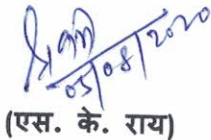 05/08/2020
(एस. के. राय)